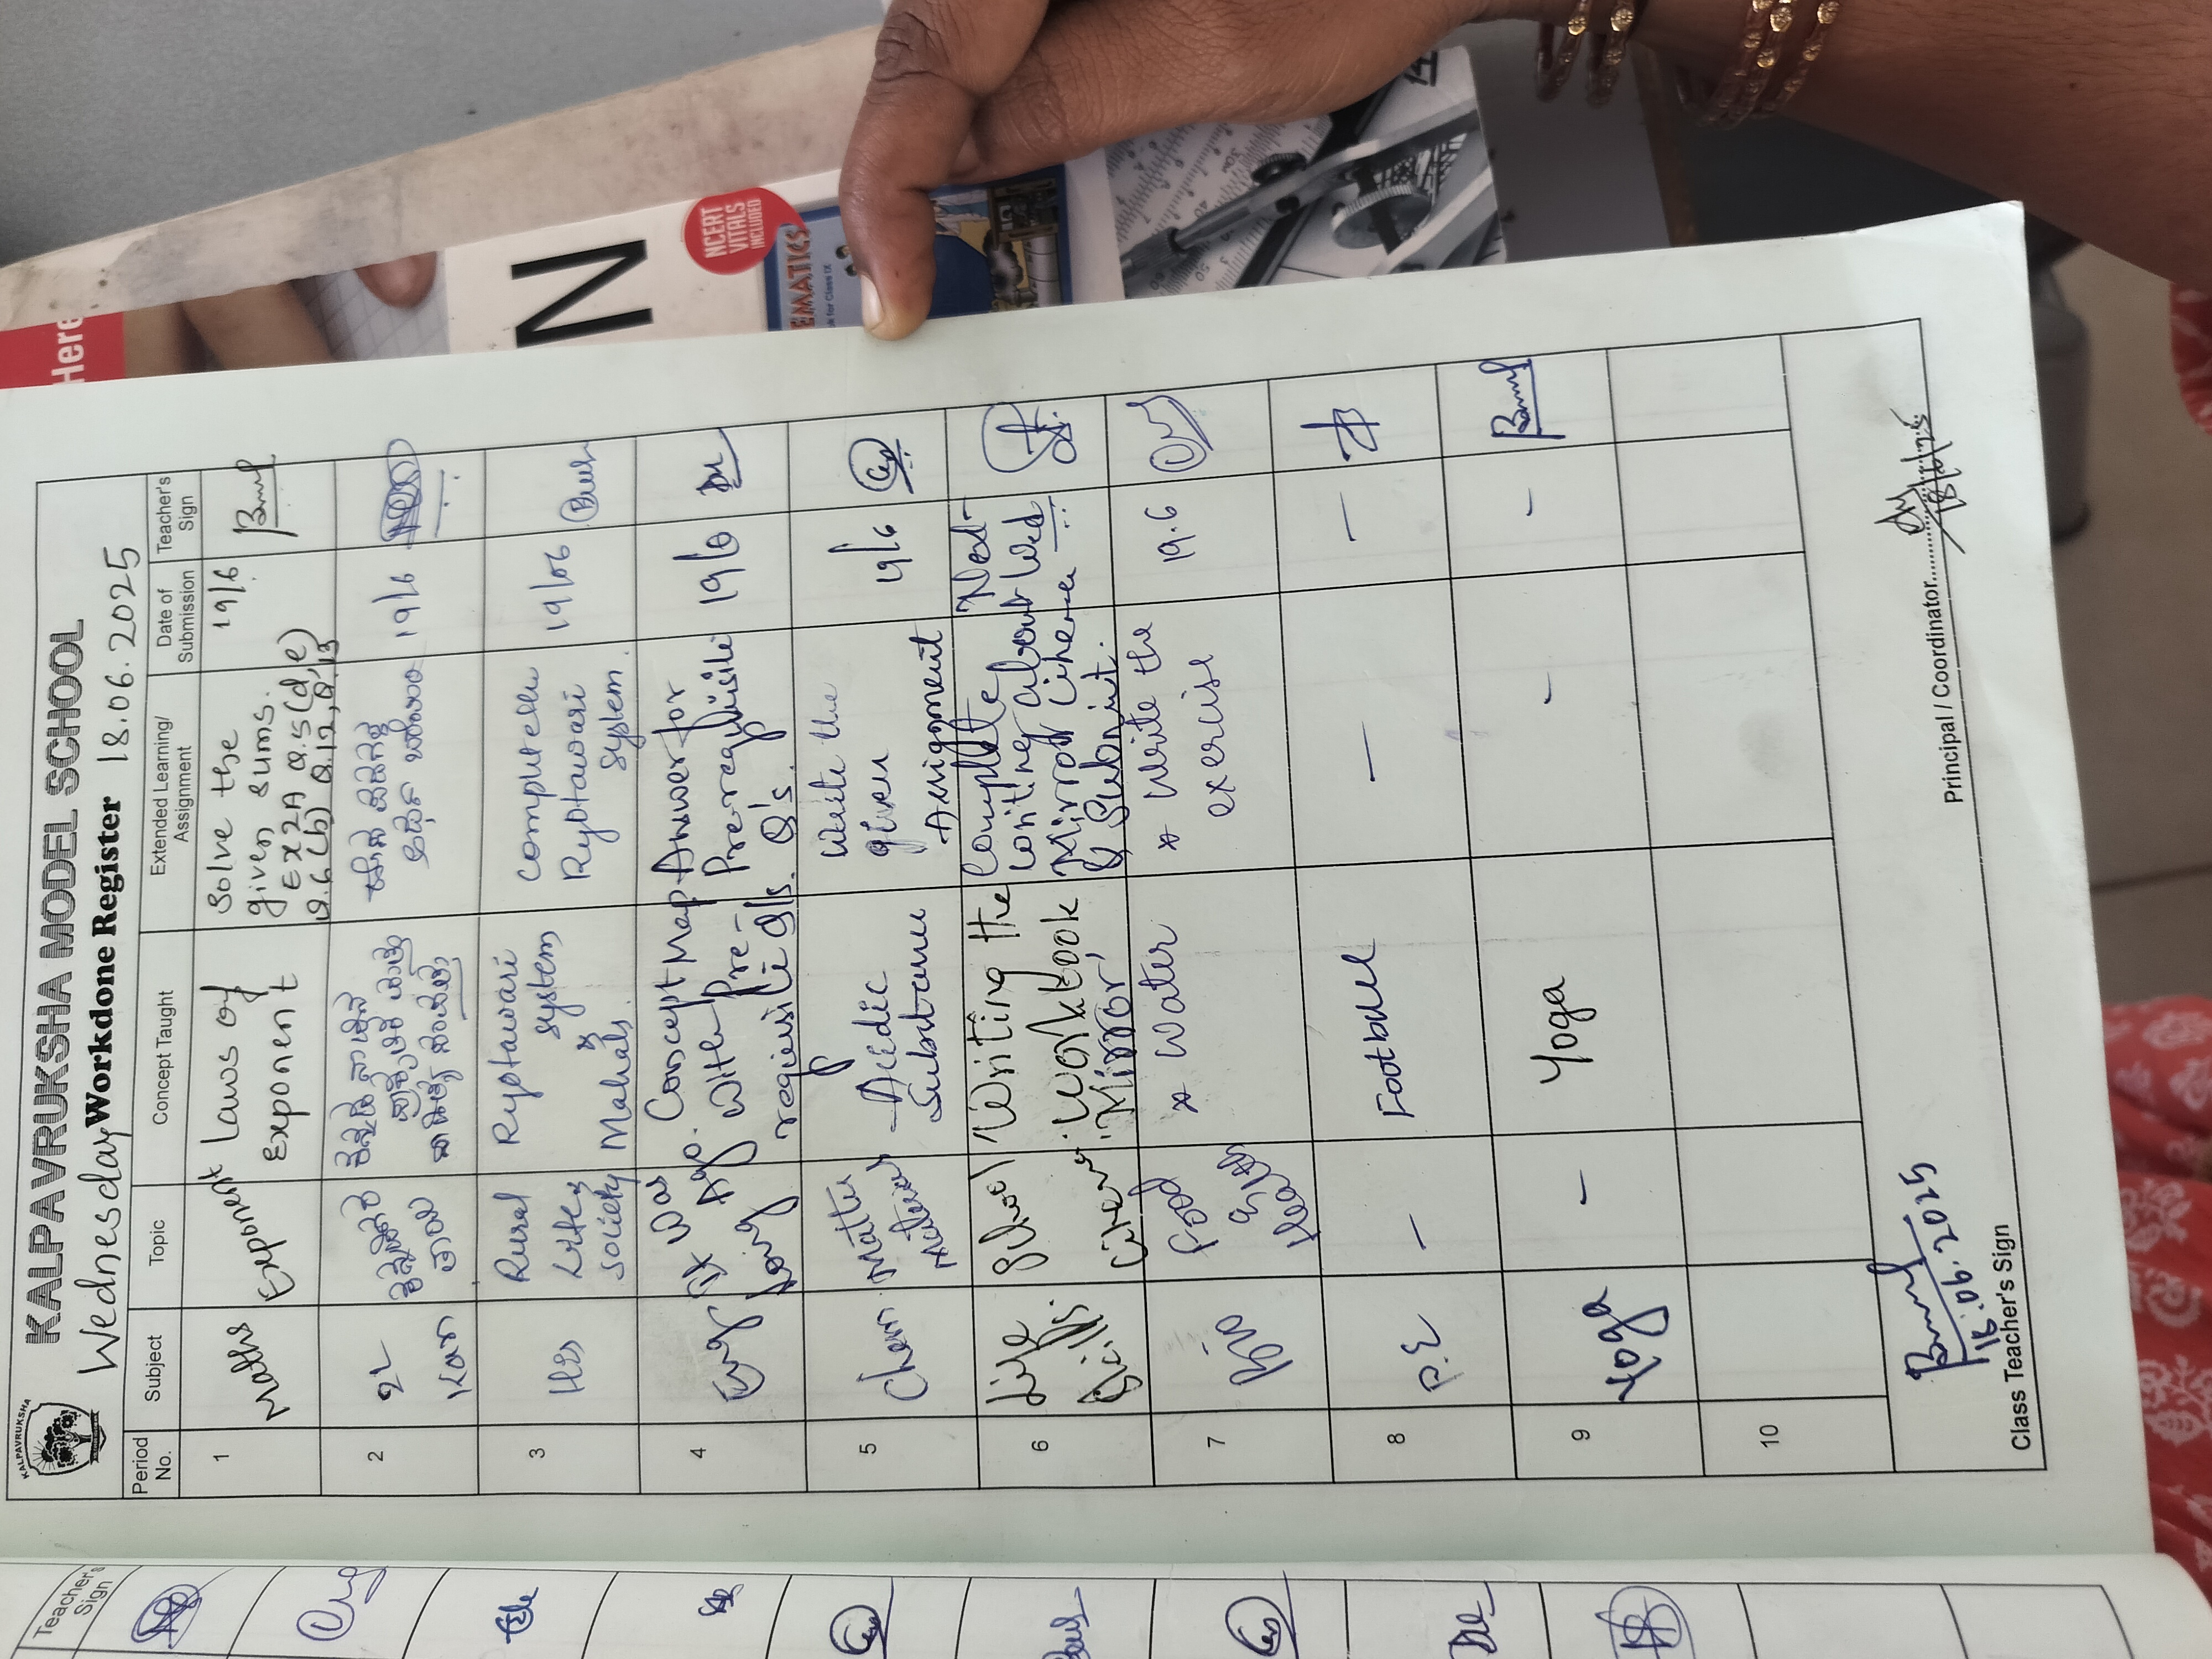 KALPAVRUKSHA
KALPAVRUKSHA MODEL SCHOOL
Wednesday Workdone Register 18.06.2025
Period No. Subject Topic Concept Taught Extended Learning/ Assignment Date of Submission Teacher's Sign
1 Maths Exponent Laws of Exponent Solve the given sums. Ex 2A Q.5(d,e) Q.6(b) Q.12, Q.13 19/6
2 2L Kan 19/6
3 His Rural Life & society Ryotwari system & Mahals Ryotwari system. 19/06
4 Eng Six was Concept Map with Pre-requisite Q's. Answer for Pre-requisite Q's. 19/6
5 Chem Matter Acidic Substance Write the given Assignment 19/6
6 Life Skills School Cinema Writing the Workbook 'Mirror' Complete writing about Mirror Cinema & Submit. Next Wed
7 Bio Food * Water * Write the exercise 19.6
8 P.E – Football – –
9 Yoga – Yoga – –
10
18.06.2025
Class Teacher's Sign
18/6/25
Principal / Coordinator
Teacher's Sign
Here
N
NCERT VITALS INCLUDED
EMATICS
k for Class IX